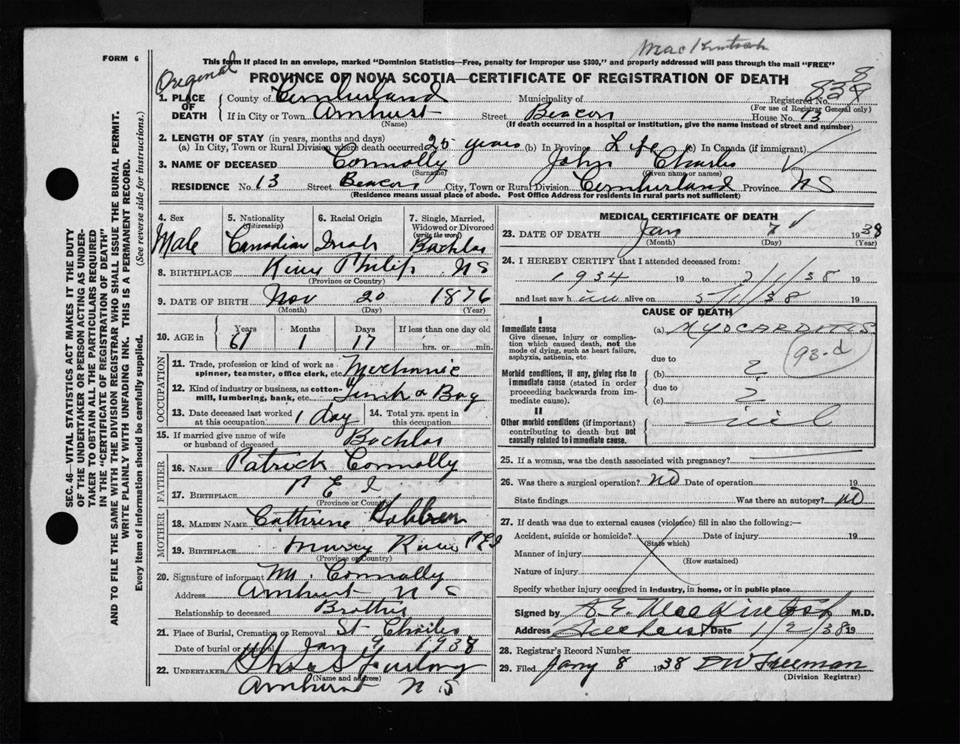 MacKintosh
FORM 6
This form if placed in an envelope, marked "Dominion Statistics—Free, penalty for improper use $300," and properly addressed will pass through the mail "FREE"
Original
PROVINCE OF NOVA SCOTIA—CERTIFICATE OF REGISTRATION OF DEATH
1. PLACE OF DEATH
County of Cumberland Municipality of Registered No. 838
(For use of Registrar General only)
If in City or Town Amherst Street Beacon House No. 13
(Name) (If death occurred in a hospital or institution, give the name instead of street and number)
2. LENGTH OF STAY (in years, months and days)
(a) In City, Town or Rural Division where death occurred 25 years (b) In Province Life (c) In Canada (if immigrant)
3. NAME OF DECEASED Connolly John Charles
(Surname) (Given name or names)
RESIDENCE No. 13 Street Beacon City, Town or Rural Division Cumberland Province NS
(Residence means usual place of abode. Post Office Address for residents in rural parts not sufficient)
SEC. 46—VITAL STATISTICS ACT MAKES IT THE DUTY
OF THE UNDERTAKER OR PERSON ACTING AS UNDER-
TAKER TO OBTAIN ALL THE PARTICULARS REQUIRED
IN THE "CERTIFICATE OF REGISTRATION OF DEATH"
AND TO FILE THE SAME WITH THE DIVISION REGISTRAR WHO SHALL ISSUE THE BURIAL PERMIT.
WRITE PLAINLY WITH UNFADING INK. THIS IS A PERMANENT RECORD.
Every item of information should be carefully supplied. (See reverse side for instructions.)
4. Sex 5. Nationality (Citizenship) 6. Racial Origin 7. Single, Married, Widowed or Divorced (write the word)
Male Canadian Irish Bachlor
8. BIRTHPLACE Philip NS
(Province or Country)
9. DATE OF BIRTH Nov 20 1876
(Month) (Day) (Year)
10. AGE in Years Months Days If less than one day old
61 1 17 hrs. or min.
OCCUPATION
11. Trade, profession or kind of work as spinner, teamster, office clerk, etc. Mechanic
12. Kind of industry or business, as cotton-mill, lumbering, bank, etc. Trunk & Bag
13. Date deceased last worked at this occupation 1 day 14. Total yrs. spent in this occupation
15. If married give name of wife or husband of deceased Bachlor
FATHER
16. NAME Patrick Connolly
17. BIRTHPLACE P E I
(Province or Country)
MOTHER
18. MAIDEN NAME Cathrine
19. BIRTHPLACE PEI
(Province or Country)
20. Signature of informant M. Connolly
Address Amherst N S
Relationship to deceased Brother
21. Place of Burial, Cremation or Removal St Charles
Date of burial or removal Jan 9 1938
22. UNDERTAKER Chas S Furlong
(Name and address)
Amherst N S
MEDICAL CERTIFICATE OF DEATH
23. DATE OF DEATH Jan 7 1938
(Month) (Day) (Year)
24. I HEREBY CERTIFY that I attended deceased from:
1934 19 to 2/1/38 19
and last saw him alive on 5/1/38 19
CAUSE OF DEATH
I
Immediate cause (a) MYOCARDITIS
Give disease, injury or complication which caused death, not the mode of dying, such as heart failure, asphyxia, asthenia, etc.
93-d
due to
Morbid conditions, if any, giving rise to immediate cause (stated in order proceeding backwards from immediate cause).
(b) ?
due to
(c) ?
II
Other morbid conditions (if important) contributing to death but not causally related to immediate cause.
nil
25. If a woman, was the death associated with pregnancy?
26. Was there a surgical operation? NO Date of operation 19
State findings Was there an autopsy? NO
27. If death was due to external causes (violence) fill in also the following:—
Accident, suicide or homicide? Date of injury 19
(State which)
Manner of injury
(How sustained)
Nature of injury
Specify whether injury occurred in Industry, in home, or in public place
Signed by A.E. MacKintosh M.D.
Address Amherst Date 1/2/38 19
28. Registrar's Record Number
29. Filed Jany 8 1938 Freeman
(Division Registrar)